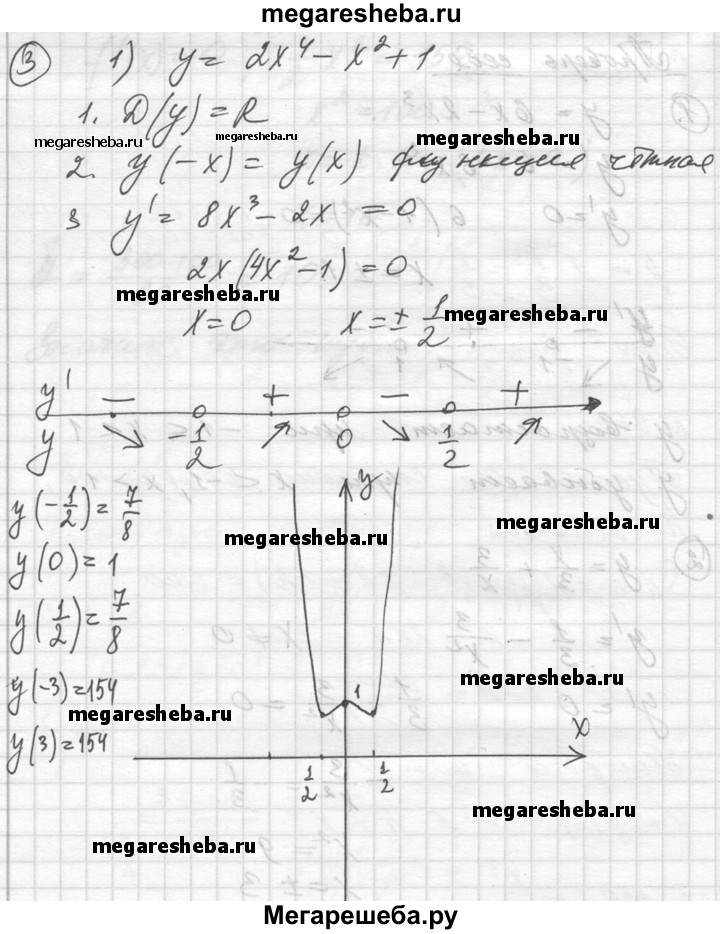 megaresheba.ru
③ 1) y = 2x⁴ - x² + 1
1. D(y) = R
megaresheba.ru megaresheba.ru megaresheba.ru
2. y(-x) = y(x) функция чётная
3 y' = 8x³ - 2x = 0
2x(4x² - 1) = 0
megaresheba.ru
x = 0 x = ± 1/2 megaresheba.ru
y' − + − +
y ↘ -1/2 ↗ 0 ↘ 1/2 ↗
y(-1/2) = 7/8
y
megaresheba.ru megaresheba.ru
y(0) = 1
y(1/2) = 7/8
megaresheba.ru
y(-3) = 154
1
megaresheba.ru
y(3) = 154
x
1/2 1/2
megaresheba.ru
megaresheba.ru
Мегарешеба.ру